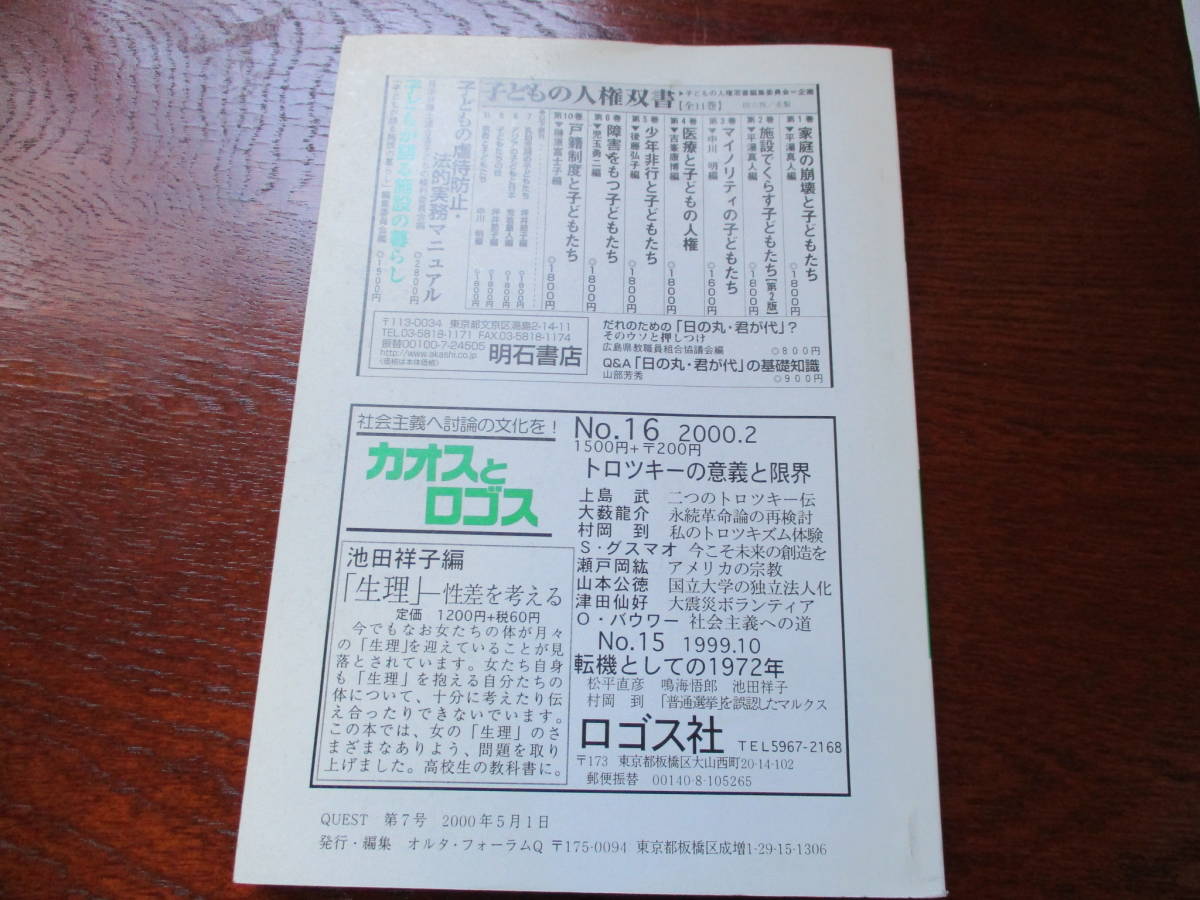 子どもの人権双書
▶子どもの人権双書編集委員会=企画
【全11巻】
第1巻 家庭の崩壊と子どもたち
▼平湯真人編 ○1800円
第2巻 施設でくらす子どもたち[第2版]
▼平湯真人編 ○1800円
第3巻 マイノリティの子どもたち
▼中川 明編 ○1600円
第4巻 医療と子どもの人権
▼吉峯康博編 ○1800円
第5巻 少年非行と子どもたち
▼後藤弘子編 ○1800円
第6巻 障害をもつ子どもたち
▼児玉勇二編 ○1800円
第10巻 戸籍制度と子どもたち
▼榊原富士子編 ○1800円
子どもの虐待防止・
法的実務マニュアル
○2800円
子どもが語る施設の暮らし
編集委員会編 ○1500円
〒113-0034 東京都文京区湯島2-14-11
TEL03-5818-1171 FAX.03-5818-1174
振替00100-7-24505
http://www.akashi.co.jp
〈価格は本体価格〉
明石書店
だれのための「日の丸・君が代」?
そのウソと押しつけ
広島県教職員組合協議会編 ○800円
Q&A「日の丸・君が代」の基礎知識
山部芳秀 ○900円
社会主義へ討論の文化を!
カオスと
ロゴス
池田祥子編
「生理」―性差を考える
定価 1200円+税60円
今でもなお女たちの体が月々
の「生理」を迎えていることが見
落とされています。女たち自身
も「生理」を抱える自分たちの
体について、十分に考えたり伝
え合ったりできないでいます。
この本では、女の「生理」のさ
まざまなありよう、問題を取り
上げました。高校生の教科書に。
No.16 2000.2
1500円+〒200円
トロツキーの意義と限界
上島 武 二つのトロツキー伝
大薮龍介 永続革命論の再検討
村岡 到 私のトロツキズム体験
S・グスマオ 今こそ未来の創造を
瀬戸岡紘 アメリカの宗教
山本公徳 国立大学の独立法人化
津田仙好 大震災ボランティア
O・バウワー 社会主義への道
No.15 1999.10
転機としての1972年
松平直彦 鳴海悟郎 池田祥子
村岡 到 「普通選挙」を誤認したマルクス
ロゴス社 TEL5967-2168
〒173 東京都板橋区大山西町20-14-102
郵便振替 00140-8-105265
QUEST 第7号 2000年5月1日
発行・編集 オルタ・フォーラムQ 〒175-0094 東京都板橋区成増1-29-15-1306